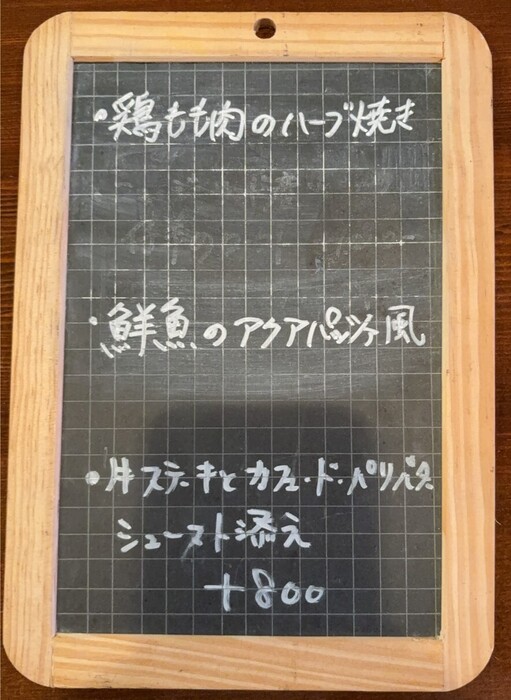 ・鶏もも肉のハーブ焼き
・鮮魚のアクアパッツァ風
・牛ステーキとカフェ・ド・パリバター
シューストト添え
+800